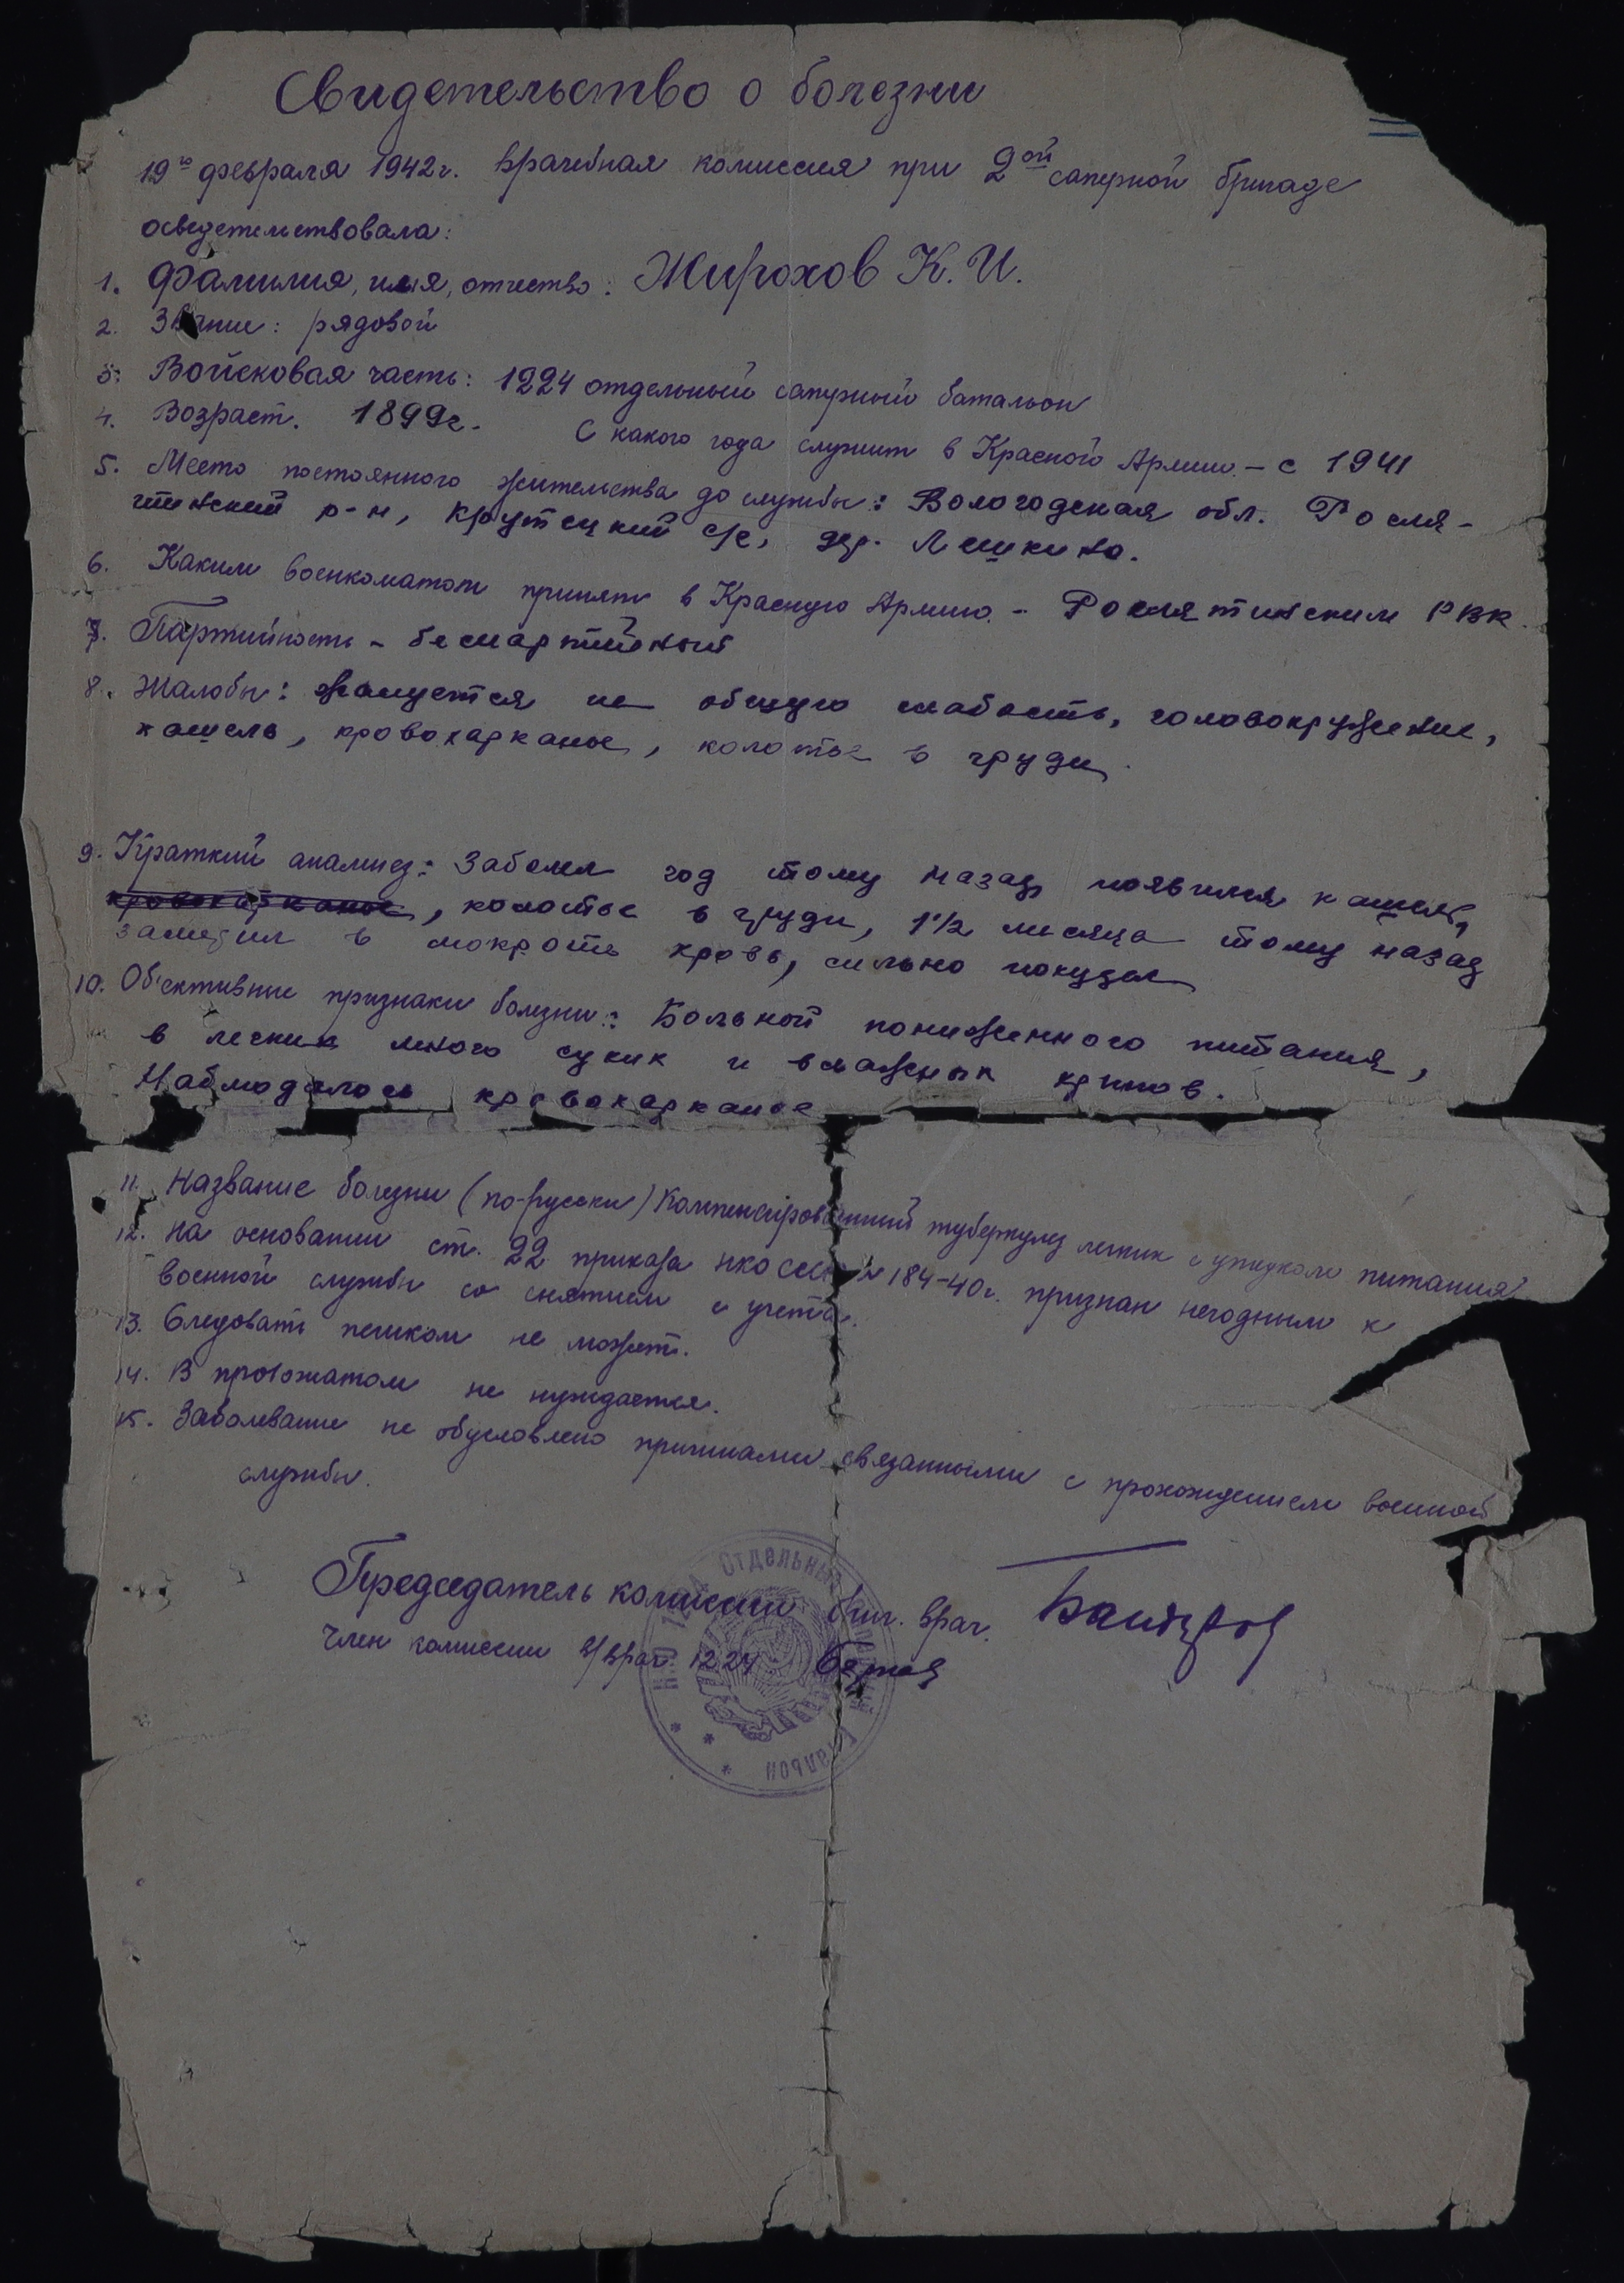 Свидетельство о болезни
19го февраля 1942г. врачебная комиссия при 2ой саперной бригаде
освидетельствовала:
1. Фамилия, имя, отчество: Жирохов К. И.
2. Звание: рядовой
3. Войсковая часть: 1224 отдельный саперный батальон
4. Возраст. 1899г. С какого года служит в Красной Армии – с 1941
5. Место постоянного жительства до службы: Вологодская обл. Росля-
тинский р-н, Крутецкий с/с, дер. Лешкино.
6. Каким военкоматом принят в Красную Армию – Рослятинским РВК.
7. Партийность – беспартийный
8. Жалобы: жалуется на общую слабость, головокружение,
кашель, кровохарканье, колотье в груди.
9. Краткий анамнез: Заболел год тому назад, появился кашель,
кровохарканье, колотье в груди, 1 1/2 месяца тому назад
заметил в мокроте кровь, сильно похудел
10. Об'ективные признаки болезни: Больной пониженного питания,
в легких много сухих и влажных хрипов.
Наблюдалось кровохарканье
11. Название болезни (по-русски) Компенсированный туберкулез легких с упадком питания
12. На основании ст. 22 приказа НКО СССР № 184-40г. признан негодным к
военной службы со снятием с учета.
13. Следовать пешком не может.
14. В провожатом не нуждается.
15. Заболевание не обусловлено причинами связанными с прохождением военной
службы.
Председатель комиссии бриг. врач.
Член комиссии в/врач 1224
НКО 1224 Отдельный Саперный Батальон